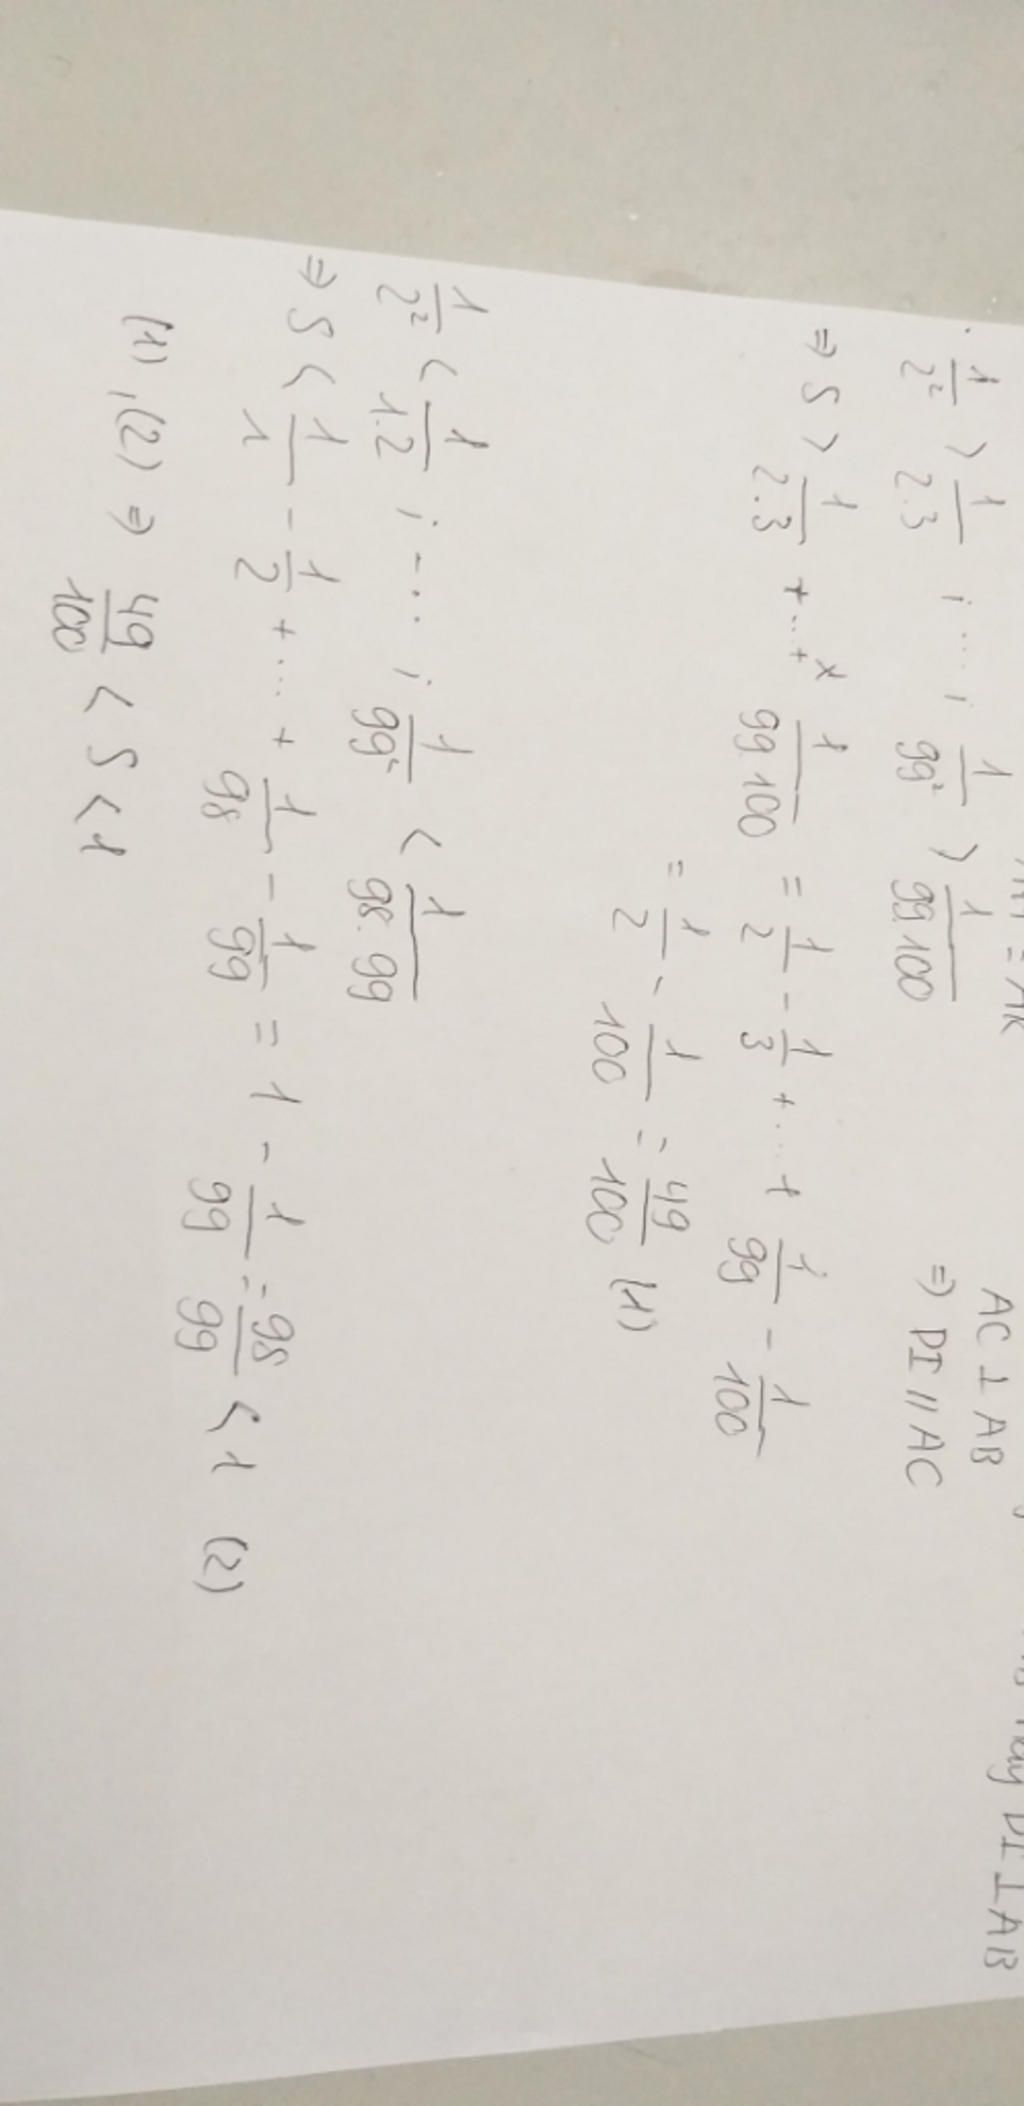 AC ⊥ AB
⇒ DI // AC
DI ⊥ AB
1/2² > 1/2.3 ; ... ; 1/99² > 1/99.100
⇒ S > 1/2.3 + ... + 1/99.100 = 1/2 - 1/3 + ... + 1/99 - 1/100
= 1/2 - 1/100 = 49/100 (1)
1/2² < 1/1.2 ; ... ; 1/99² < 1/98.99
⇒ S < 1/1 - 1/2 + ... + 1/98 - 1/99 = 1 - 1/99 = 98/99 < 1 (2)
(1), (2) ⇒ 49/100 < S < 1